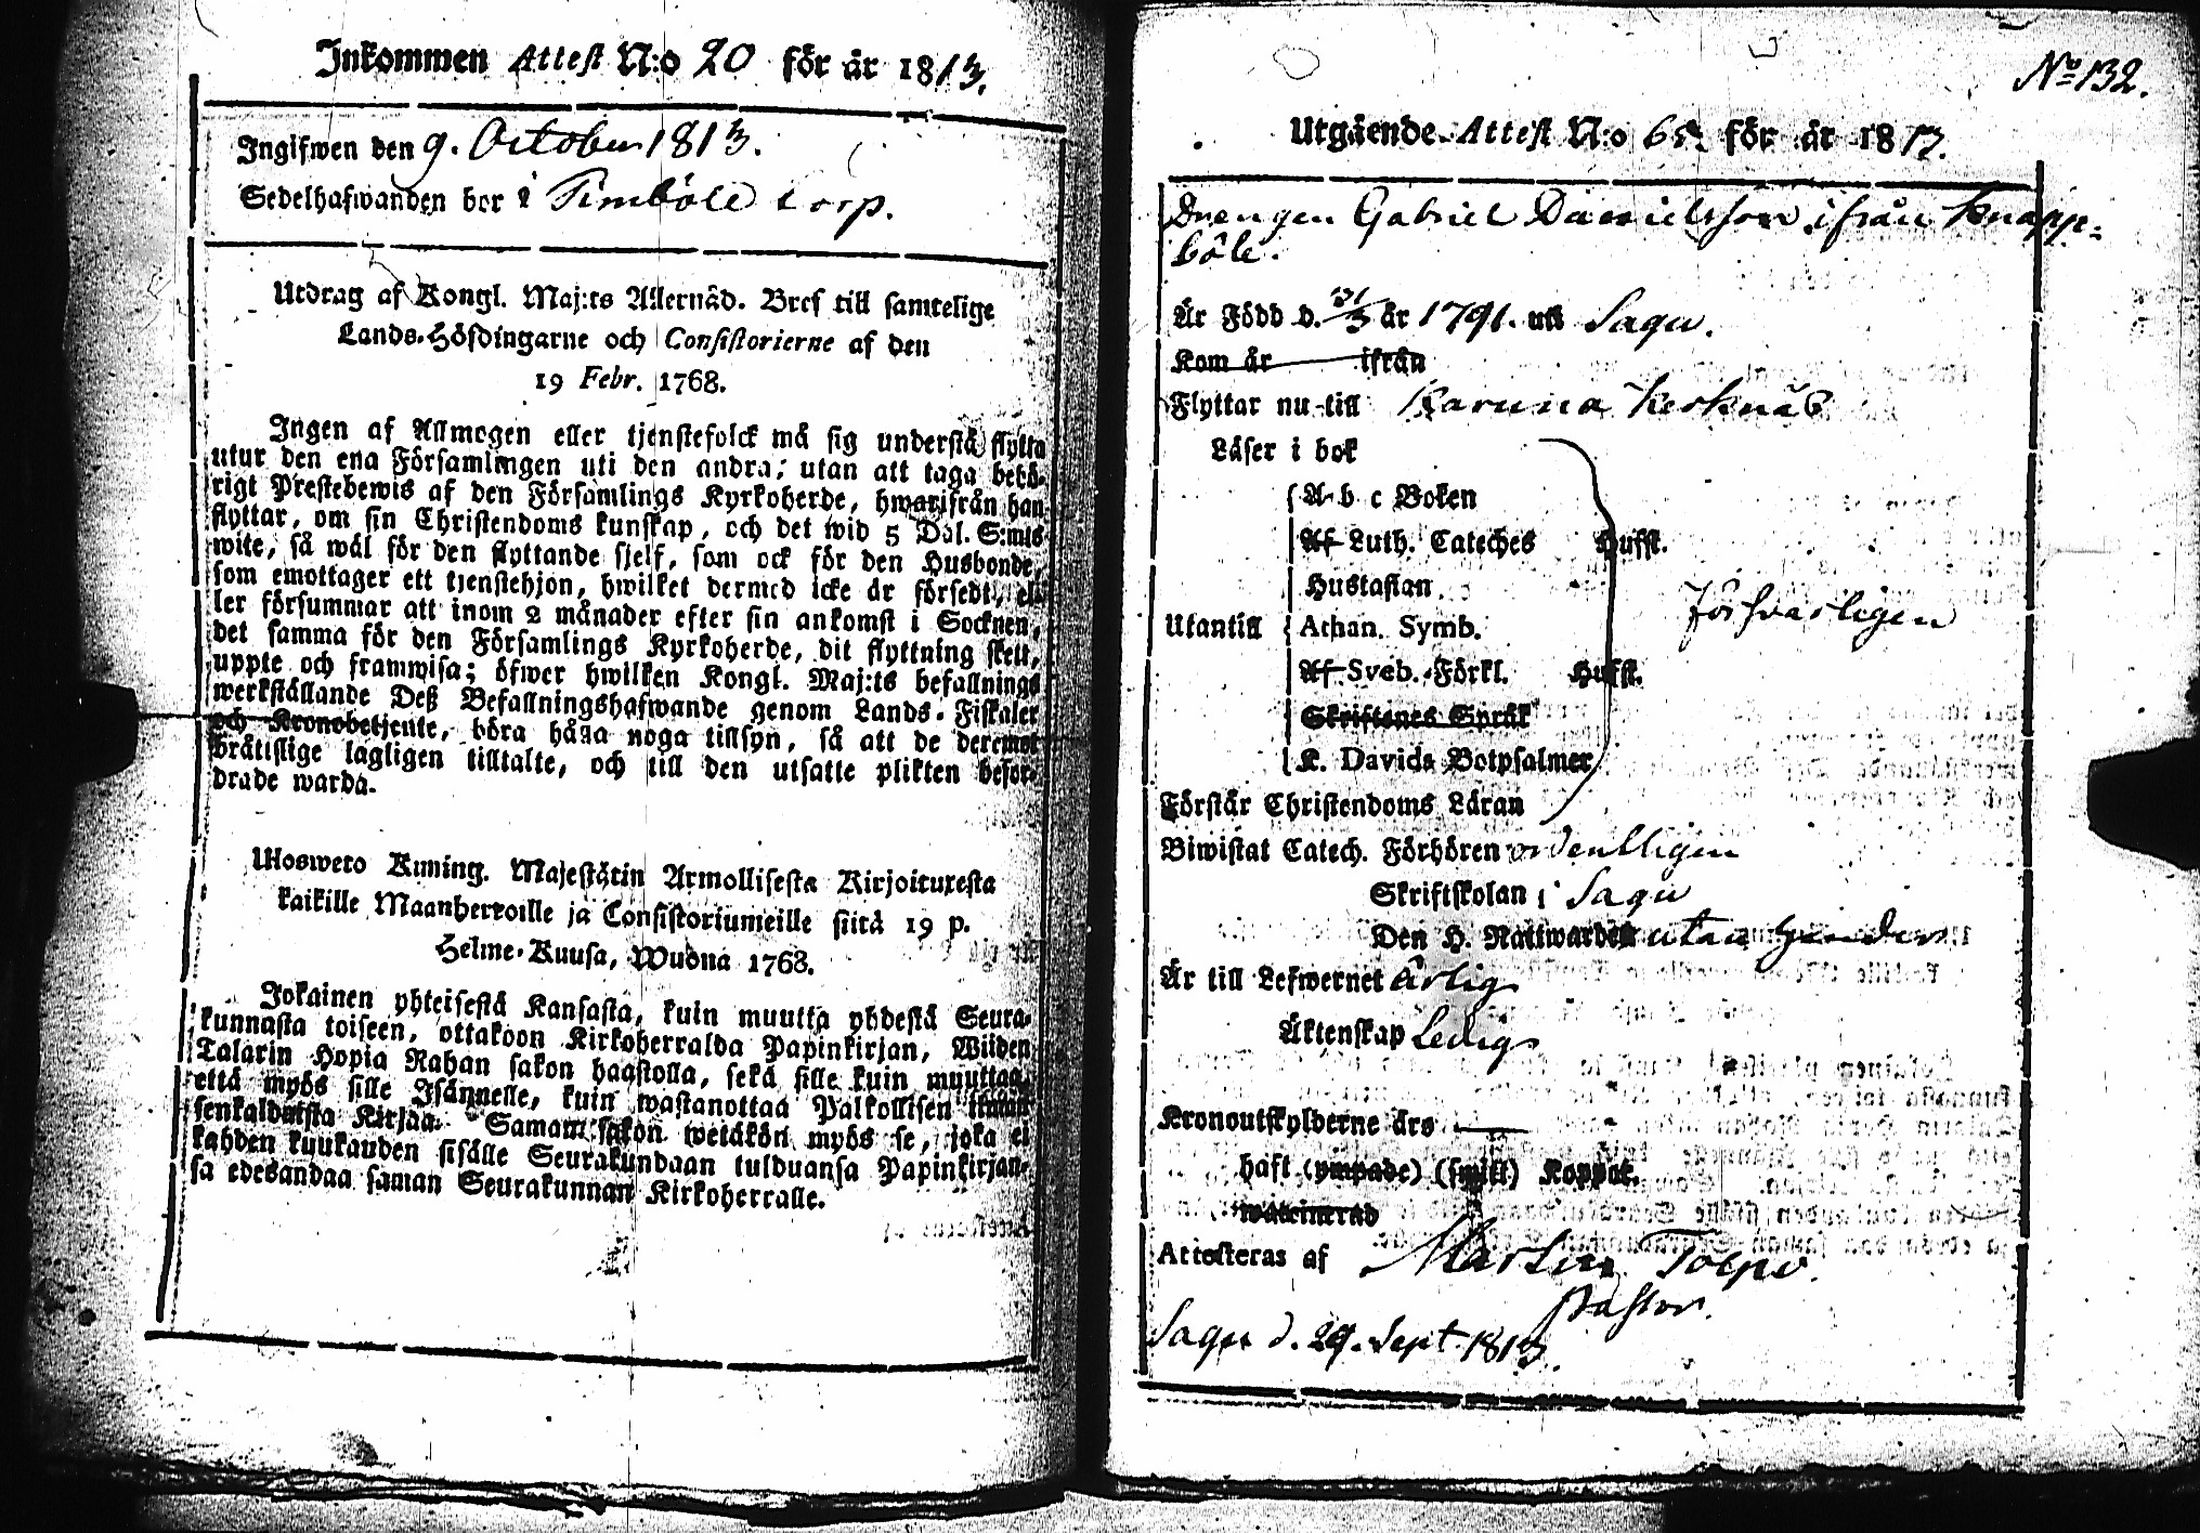 Inkommen Attest N:o 20 för år 1813.
Ingifwen den 9. October 1813.
Sedelhafwanden bor i Timböle torp.
Utdrag af Kongl. Maj:ts Allernåd. Bref till samtelige
Lands-Höfdingarne och Consistorierne af den
19 Febr. 1768.
Ingen af Allmogen eller tjenstefolck må sig understå flytta
utur den ena Församlingen uti den andra; utan att taga behö-
rigt Prestebewis af den Församlings Kyrkoherde, hwarifrån han
flyttar, om sin Christendoms kunskap, och det wid 5 Dal. S:mts
wite, så wäl för den flyttande sjelf, som ock för den Husbonde,
som emottager ett tjenstehjon, hwilket dermed icke är försedt, el-
ler försummar att inom 2 månader efter sin ankomst i Socknen,
det samma för den Församlings Kyrkoherde, dit flyttning skett,
uppte och framwisa; öfwer hwilken Kongl. Maj:ts befallnings
werkställande Deß Befallningshafwande genom Lands-Fiskaler
och Kronobetjente, böra hålla noga tillsyn, så att de deremot
brätislige lagligen tilltalte, och till den utsatte plikten befor-
drade warda.
Ulosweto Kuning. Majestätin Armollisesta Kirjoituxesta
kaikille Maanherroille ja Consistoriumeille siitä 19 p.
Helme-Kuusa, Wuodna 1768.
Jokainen yhteisestä Kansasta, kuin muutta yhdestä Seura-
kunnasta toiseen, ottakoon Kirkoherralda Papinkirjan, Wiiden
Talarin Hopia Rahan sakon haastolla, sekä sille kuin muuttaa,
että myös sille Isännelle, kuin wastanottaa Palkollisen ilman
senkaldaista Kirjaa. Saman sakon wetäkön myös se, joka ei
kahden kuukauden sisälle Seurakundaan tulduansa Papinkirjan-
sa edesandaa saman Seurakunnan Kirkoherralle.
No 132.
Utgående Attest N:o 65. för år 1813.
Drengen Gabriel Danielsson ifrån Knapp-
böle.
Är Född d. 21/3 år 1791. uti Sagu.
Kom år ifrån
Flyttar nu till Karuna Kerknäs
Läser i bok
A b c Boken
Af Luth. Cateches Hufst.
Hustaflan
Utantill Athan. Symb.
Försvarligen
Af Sveb. Förkl. Hufst.
Skriftenes Språk
K. Davids Botpsalmer
Förstår Christendoms Läran
Biwistat Catech. Förhören ordentligen
Skriftskolan i Sagu
Den H. Nattwarden utan hinder
Är till Lefwernet ärlig
Äktenskap Ledig
Kronoutskylderne års
haft (ympade) (smitt) Koppor.
waccinerad
Attesteras af Martin Tolpo.
Pastor.
Sagu d. 29. Sept. 1813.